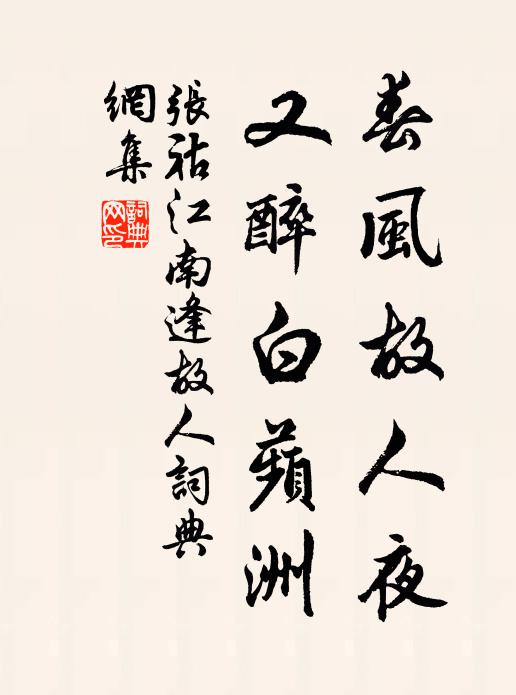 春風故人夜
又醉白蘋洲
張祜江南逢故人詞典
網集
詞典網印